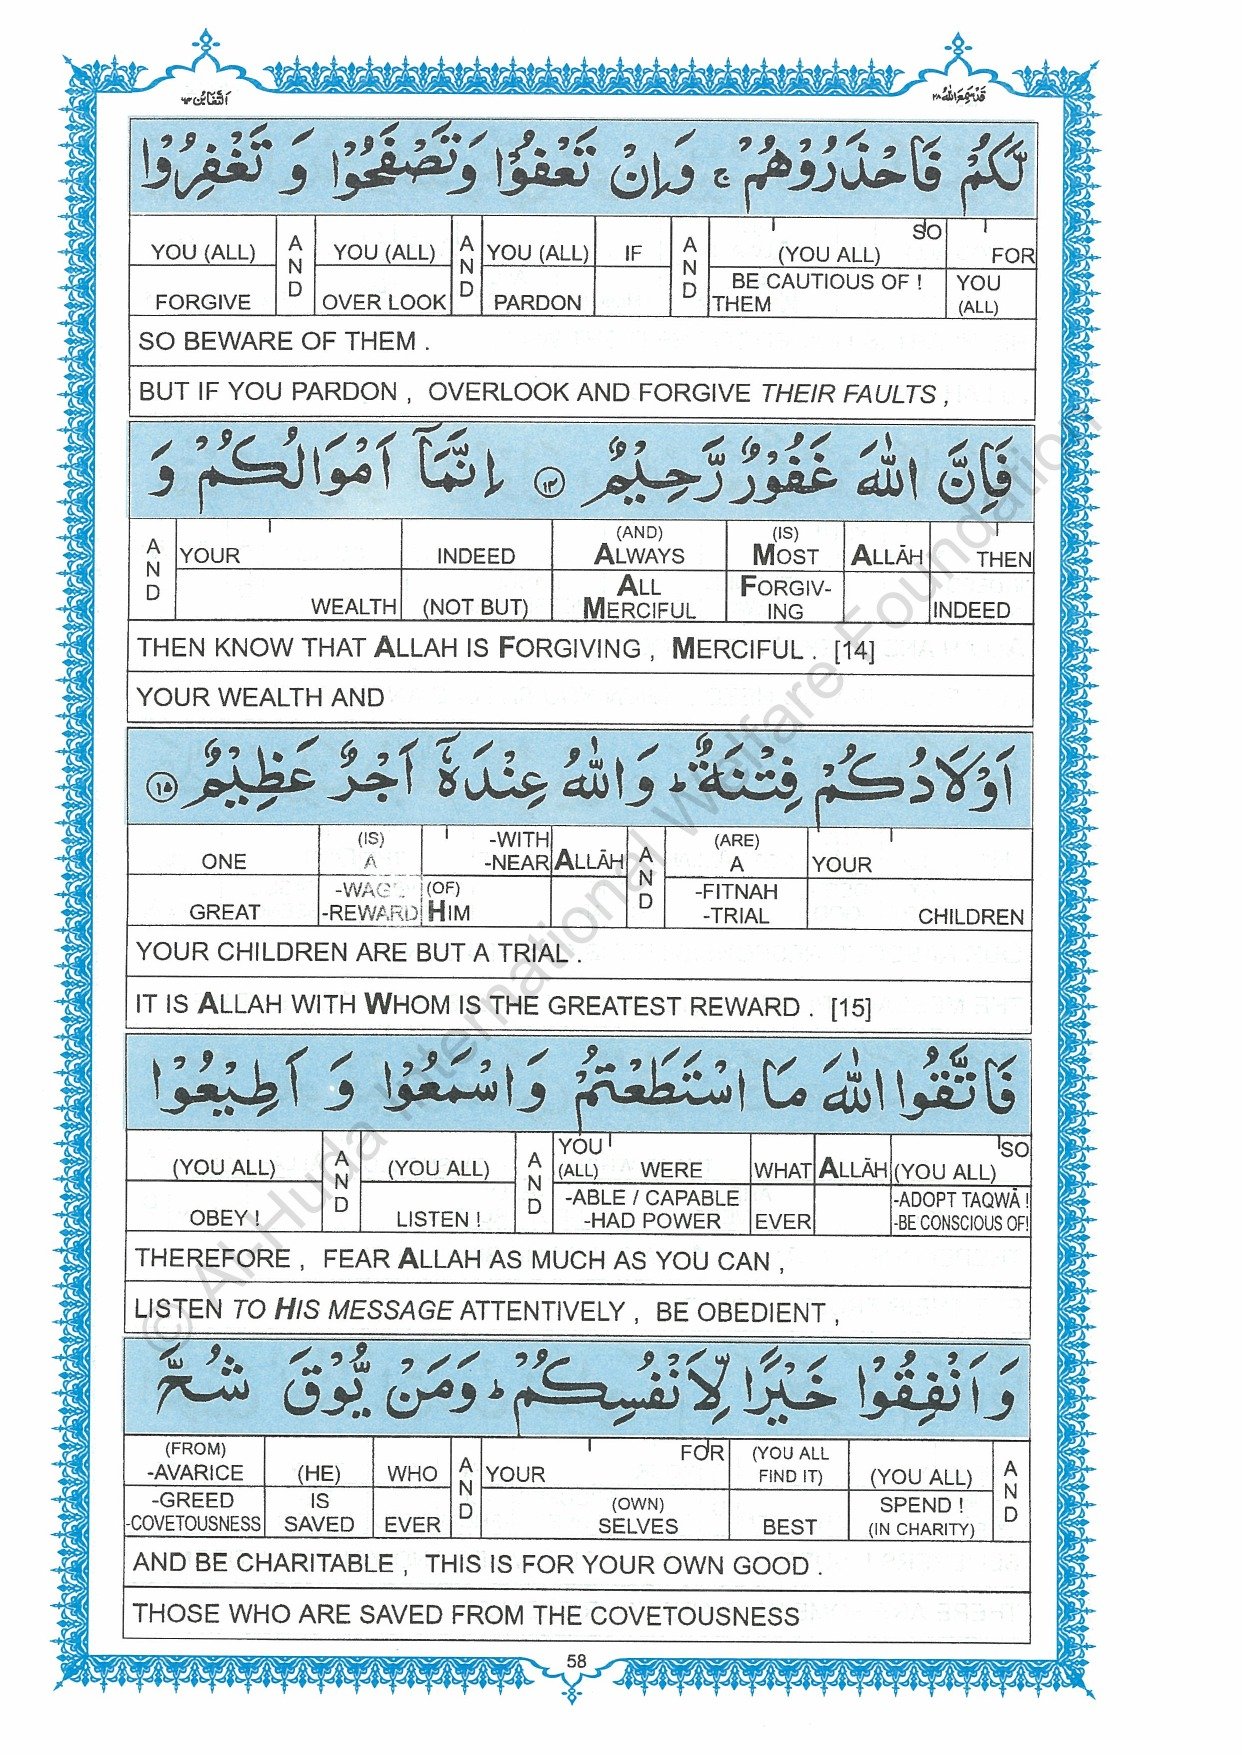 اَلتَّغَابُن ٦٤
قَدْ سَمِعَ اللّٰهُ ٢٨
لَّكُمْ فَاحْذَرُوْهُمْ ۚ وَاِنْ تَعْفُوْا وَتَصْفَحُوْا وَ تَغْفِرُوْا
YOU (ALL) AND YOU (ALL) AND YOU (ALL) IF AND (YOU ALL) SO FOR
FORGIVE OVER LOOK PARDON BE CAUTIOUS OF ! THEM YOU (ALL)
SO BEWARE OF THEM .
BUT IF YOU PARDON , OVERLOOK AND FORGIVE THEIR FAULTS ,
فَاِنَّ اللّٰهَ غَفُوْرٌ رَّحِيْمٌ ۝١٤ اِنَّمَآ اَمْوَالُكُمْ وَ
AND YOUR INDEED (AND) ALWAYS (IS) MOST ALLĀH THEN
WEALTH (NOT BUT) ALL MERCIFUL FORGIV-ING INDEED
THEN KNOW THAT ALLAH IS FORGIVING , MERCIFUL . [14]
YOUR WEALTH AND
اَوْلَادُكُمْ فِتْنَةٌ ؕ وَاللّٰهُ عِنْدَهٗٓ اَجْرٌ عَظِيْمٌ ۝١٥
ONE (IS) A -WITH -NEAR ALLĀH AND (ARE) A YOUR
GREAT -WAGE -REWARD (OF) HIM -FITNAH -TRIAL CHILDREN
YOUR CHILDREN ARE BUT A TRIAL .
IT IS ALLAH WITH WHOM IS THE GREATEST REWARD . [15]
فَاتَّقُوا اللّٰهَ مَا اسْتَطَعْتُمْ وَاسْمَعُوْا وَ اَطِيْعُوْا
(YOU ALL) AND (YOU ALL) AND YOU (ALL) WERE WHAT ALLĀH (YOU ALL) SO
OBEY ! LISTEN ! -ABLE / CAPABLE -HAD POWER EVER -ADOPT TAQWĀ ! -BE CONSCIOUS OF!
THEREFORE , FEAR ALLAH AS MUCH AS YOU CAN ,
LISTEN TO HIS MESSAGE ATTENTIVELY , BE OBEDIENT ,
وَ اَنْفِقُوْا خَيْرًا لِّاَنْفُسِكُمْ ؕ وَمَنْ يُّوْقَ شُحَّ
(FROM) -AVARICE (HE) WHO AND YOUR FOR (YOU ALL FIND IT) (YOU ALL) AND
-GREED -COVETOUSNESS IS SAVED EVER (OWN) SELVES BEST SPEND ! (IN CHARITY)
AND BE CHARITABLE , THIS IS FOR YOUR OWN GOOD .
THOSE WHO ARE SAVED FROM THE COVETOUSNESS
58
© Al-Huda International Welfare Foundation